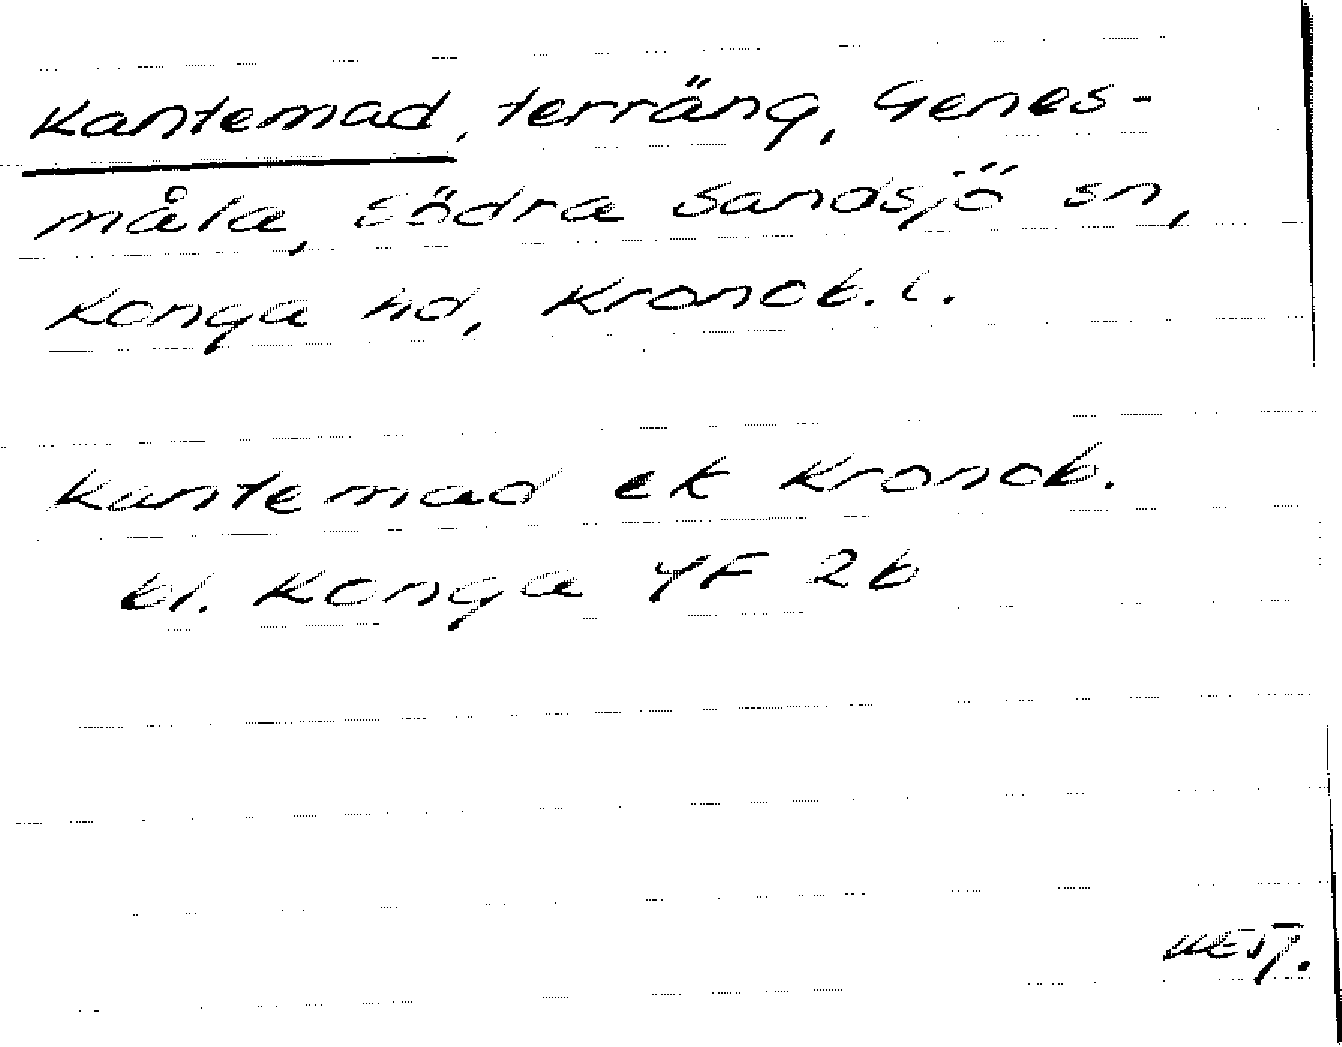 Kantemad, terräng, Genes-
måla, Södra Sandsjö sn,
Konga hd, Kronob. l.
Kantemad ek Kronob.
bl. Konga 4F 2b